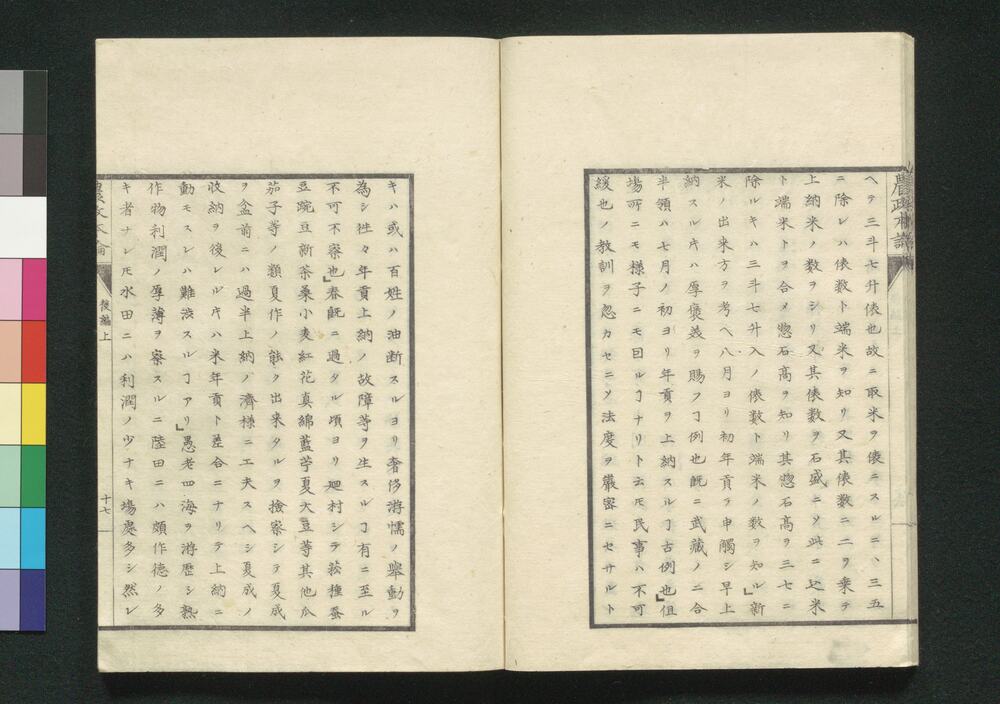 ヘテ三斗七升俵也故ニ取米ヲ俵ニスルニハ三五
ニ除レハ俵数ト端米ヲ知リ又其俵数ニ二ヲ乗テ
上納米ノ数ヲシリ又其俵数ヲ石盛ニソ此ニ延米
ト端米トヲ合メ惣石高ヲ知リ其惣石高ヲ三七ニ
除ルキハ三斗七升入ノ俵数ト端米ノ数ヲ知ル」新
米ノ出来方ヲ考ヘ八月ヨリ初年貢ヲ申觸シ早上
納スルキハ厚褒美ヲ賜フヿ例也既ニ武藏ノ二合
半領ハ七月ノ初ヨリ年貢ヲ上納スルヿ古例也」但
場所ニモ様子ニモ回ルヿナリト云モ民事ハ不可
緩也ノ教訓ヲ忽カセニソ法度ヲ嚴密ニセサルト
農政本論
後編上
十七
キハ或ハ百姓ノ油断スルヨリ奢侈游懦ノ舉動ヲ
為シ徃々年貢上納ノ故障等ヲ生スルヿ有ニ至ル
不可不察也」春既ニ過タル頃ヨリ廻村シテ菘種蚕
豆豌豆新茶桑小麦紅花真綿藍苧夏大豆等其他瓜
茄子等ノ類夏作ノ能ク出来タルヲ撿察シテ夏成
ヲ盆前ニハ過半上納ノ濟様ニ工夫スヘシ夏成ノ
收納ヲ後レルキハ米年貢ト差合ニナリテ上納ニ
動モスレハ難渋スルヿアリ」愚老四海ヲ游歴シ熟
作物利潤ノ厚薄ヲ察スルニ陸田ニハ頗作徳ノ多
キ者ナレ𪜈水田ニハ利潤ノ少ナキ場處多シ然レ